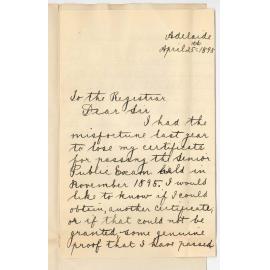 Adelaide
April 25th 1898
To the Registrar
Dear Sir
I had the
misfortune last year
to lose my certificate
for passing the Senior
Public Exam held in
November 1895. I would
like to know if I could
obtain another certificate,
or if that could not be
granted some genuine
proof that I have passed